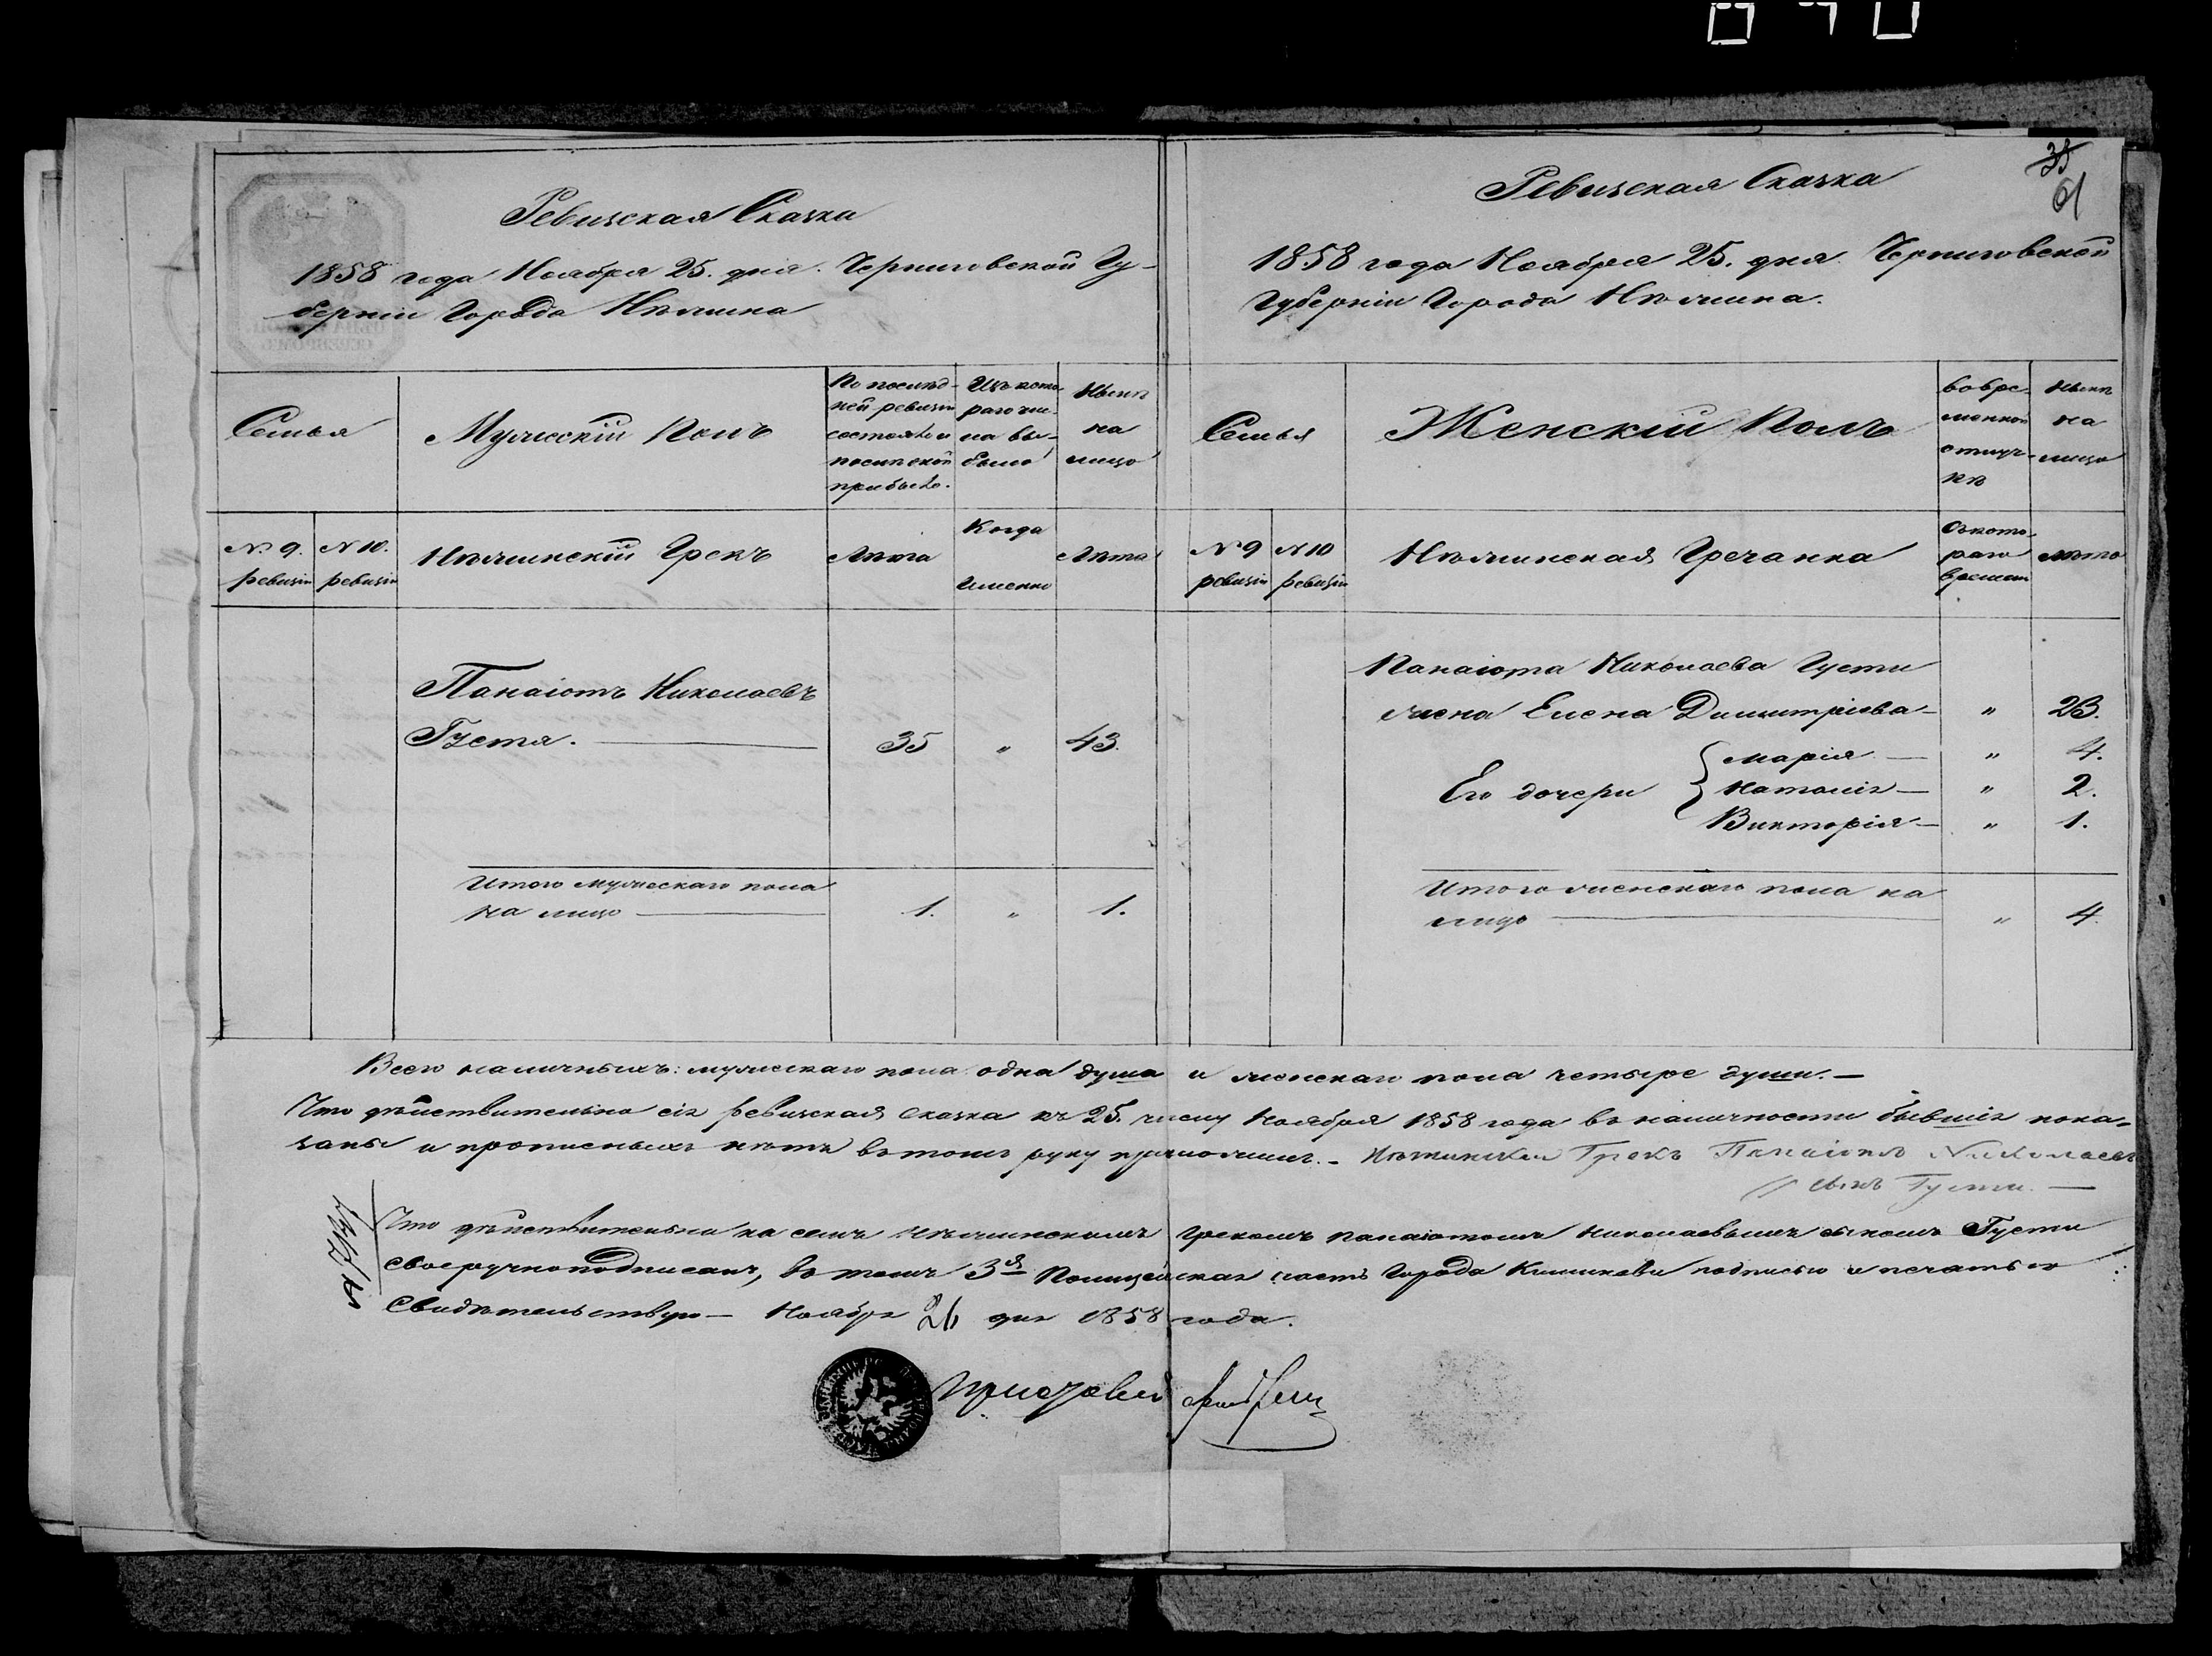 35
61
Ревизская Сказка
1858 года Ноября 25. дня. Черниговской Гу-
берніи Города Нѣжина
Семья
Мужескій Полъ
По послѣд-
ней ревизіи
состояло и
послѣ оной
прибыло.
Изъ кото-
раго чис-
ла вы-
было
Нынѣ
на
лицо
№ 9.
ревизіи
№ 10.
ревизіи
Нѣжинскій Грекъ
Лѣта
Когда
именно
Лѣта
Панаіотъ Николаевъ
Густя.
35 " 43.
Итого мужескаго пола
на лицо 1. " 1.
Ревизская Сказка
1858 года Ноября 25. дня. Черниговской
Губерніи Города Нѣжина.
Семья
Женскій Полъ
во вре-
менной
отлуч-
кѣ
Нынѣ
на
лицо
№ 9
ревизіи
№ 10
ревизіи
Нѣжинская Гречанка
Съ кото-
раго
времени
лѣта
Панаіота Николаева Густи
жена Елена Димитріева - " 23.
Его дочери
Марія - " 4.
Наталія - " 2.
Викторія - " 1.
Итого женскаго пола на
лицо " 4.
Всего наличныхъ: мужескаго пола одна душа и женскаго пола четыре души. -
Что дѣйствительно сія ревизская сказка къ 25. числу Ноября 1858 года въ наличности бывшія пока-
заны и прописныхъ нѣтъ въ томъ руку приложилъ. - Нѣжинскій Грекъ Панаіотъ Николаевъ
сынъ Густи. -
Что дѣйствительно на семъ Нѣжинскимъ Грекомъ Панаіотомъ Николаевымъ сыномъ Густи
своеручно подписанъ, въ томъ 3я Полицейская часть Города Кишинева подписью и печатью
Свидѣтельствую - Ноября 26 дня 1858 года.